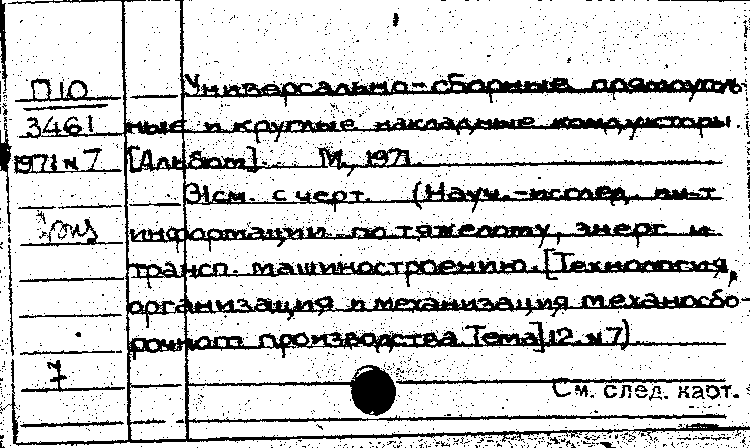 П10 Универсально-сборные прямоуголь-
3461 ные и круглые накладные кондукторы.
1971 н 7 [Альбом]. М., 1971.
31см. с черт. (Науч.-исслед. ин-т
информации по тяжелому, энерг. и
трансп. машиностроению. [Технология,
организация и механизация механосбо-
рочного производства. Тема] 12. н 7)
См. след. карт.